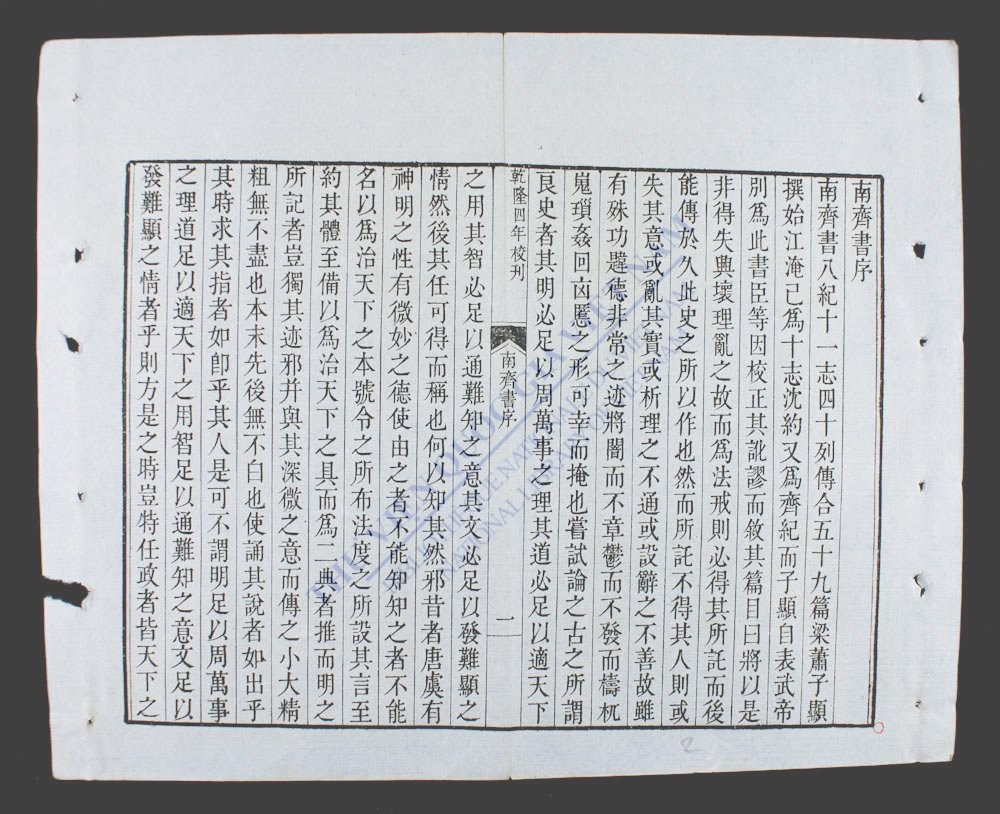 南齊書序
南齊書八紀十一志四十列傳合五十九篇梁蕭子顯
撰始江淹已爲十志沈約又爲齊紀而子顯自表武帝
別爲此書臣等因校正其訛謬而敘其篇目曰將以是
非得失興壞理亂之故而爲法戒則必得其所託而後
能傳於久此史之所以作也然而所託不得其人則或
失其意或亂其實或析理之不通或設辭之不善故雖
有殊功韙德非常之迹將闇而不章鬱而不發而檮杌
嵬瑣姦回凶慝之形可幸而掩也嘗試論之古之所謂
良史者其明必足以周萬事之理其道必足以適天下
乾隆四年校刊
南齊書序
一
之用其智必足以通難知之意其文必足以發難顯之
情然後其任可得而稱也何以知其然邪昔者唐虞有
神明之性有微妙之德使由之者不能知知之者不能
名以爲治天下之本號令之所布法度之所設其言至
約其體至備以爲治天下之具而爲二典者推而明之
所記者豈獨其迹邪并與其深微之意而傳之小大精
粗無不盡也本末先後無不白也使誦其說者如出乎
其時求其指者如卽乎其人是可不謂明足以周萬事
之理道足以適天下之用智足以通難知之意文足以
發難顯之情者乎則方是之時豈特任政者皆天下之
THƯ VIỆN QUỐC GIA VIỆT NAM
NATIONAL LIBRARY OF VIETNAM
2